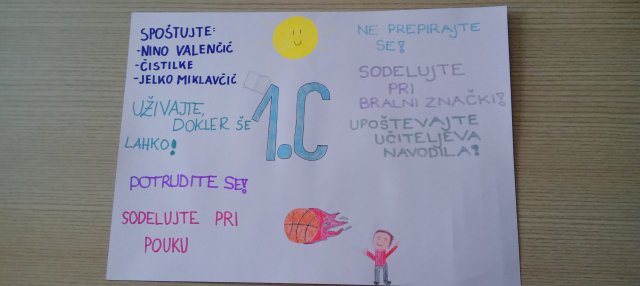 SPOŠTUJTE:
-NINO VALENČIČ
-ČISTILKE
-JELKO MIKLAVČIČ
UŽIVAJTE,
DOKLER ŠE
LAHKO!
POTRUDITE SE!
SODELUJTE PRI
POUKU
1.C
NE PREPIRAJTE
SE!
SODELUJTE
PRI
BRALNI ZNAČKI!
UPOŠTEVAJTE
UČITELJEVA
NAVODILA!